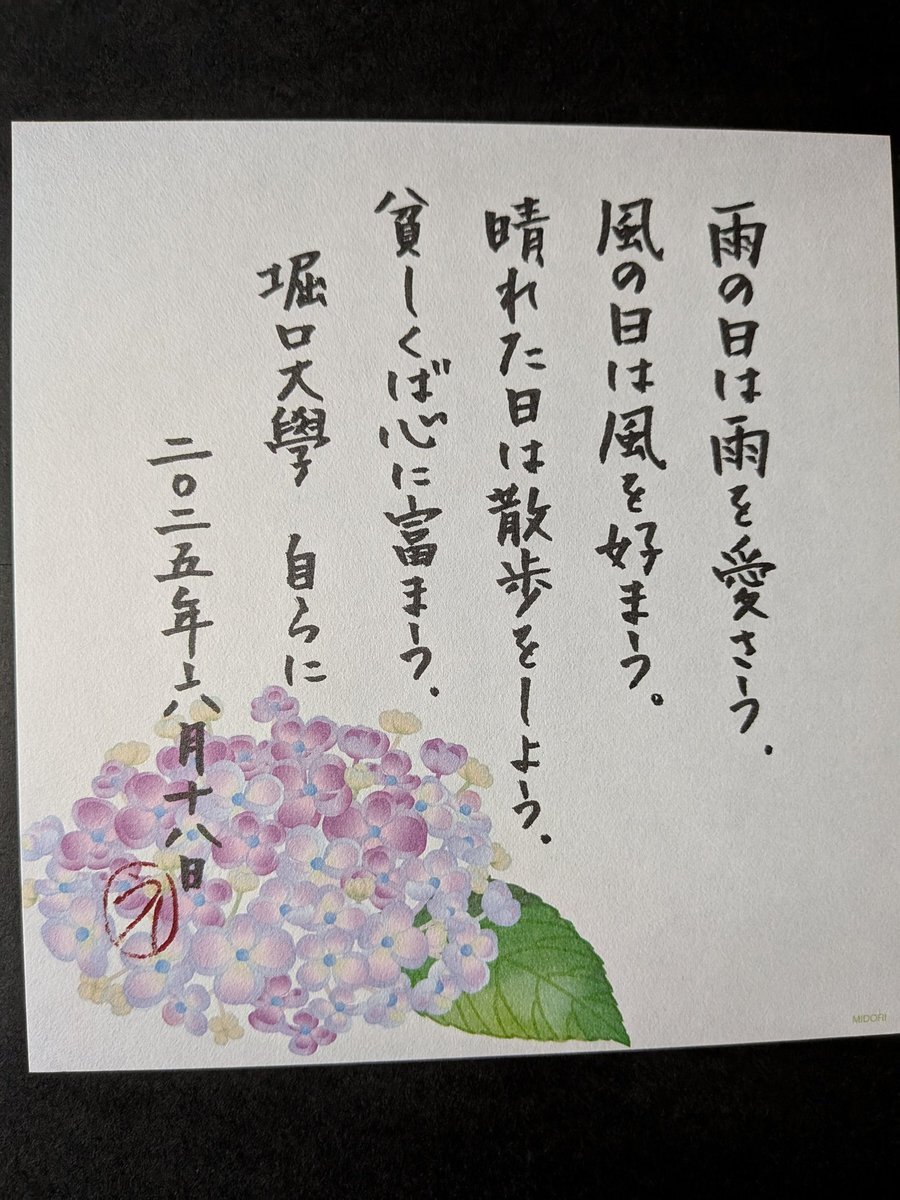 雨の日は雨を愛さう.
風の日は風を好まう。
晴れた日は散歩をしよう.
貧しくば心に富まう.
堀口大學 自らに
二〇二五年六月十八日
MIDORI